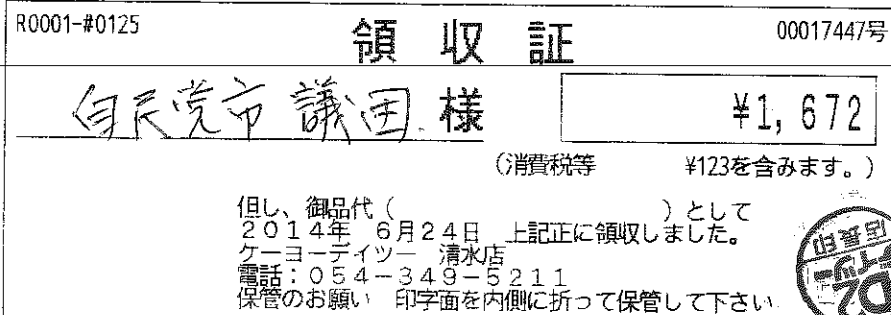 R0001-#0125
領収証
00017447号
自民党市議団 様
¥1,672
(消費税等 ¥123を含みます。)
但し、御品代( )として
2014年 6月24日 上記正に領収しました。
ケーヨーデイツー 清水店
電話:054-349-5211
保管のお願い 印字面を内側に折って保管して下さい.
店長印
D2